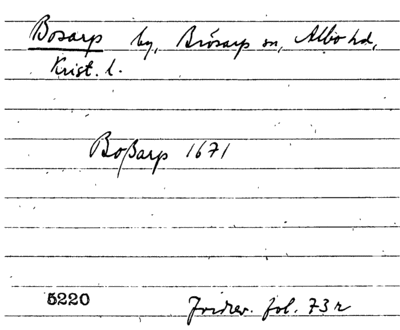 Bosarp by, Brösarp sn, Albo hd,
Krist. l.
Boßarp 1671
5220 Jordrev. fol. 73 r